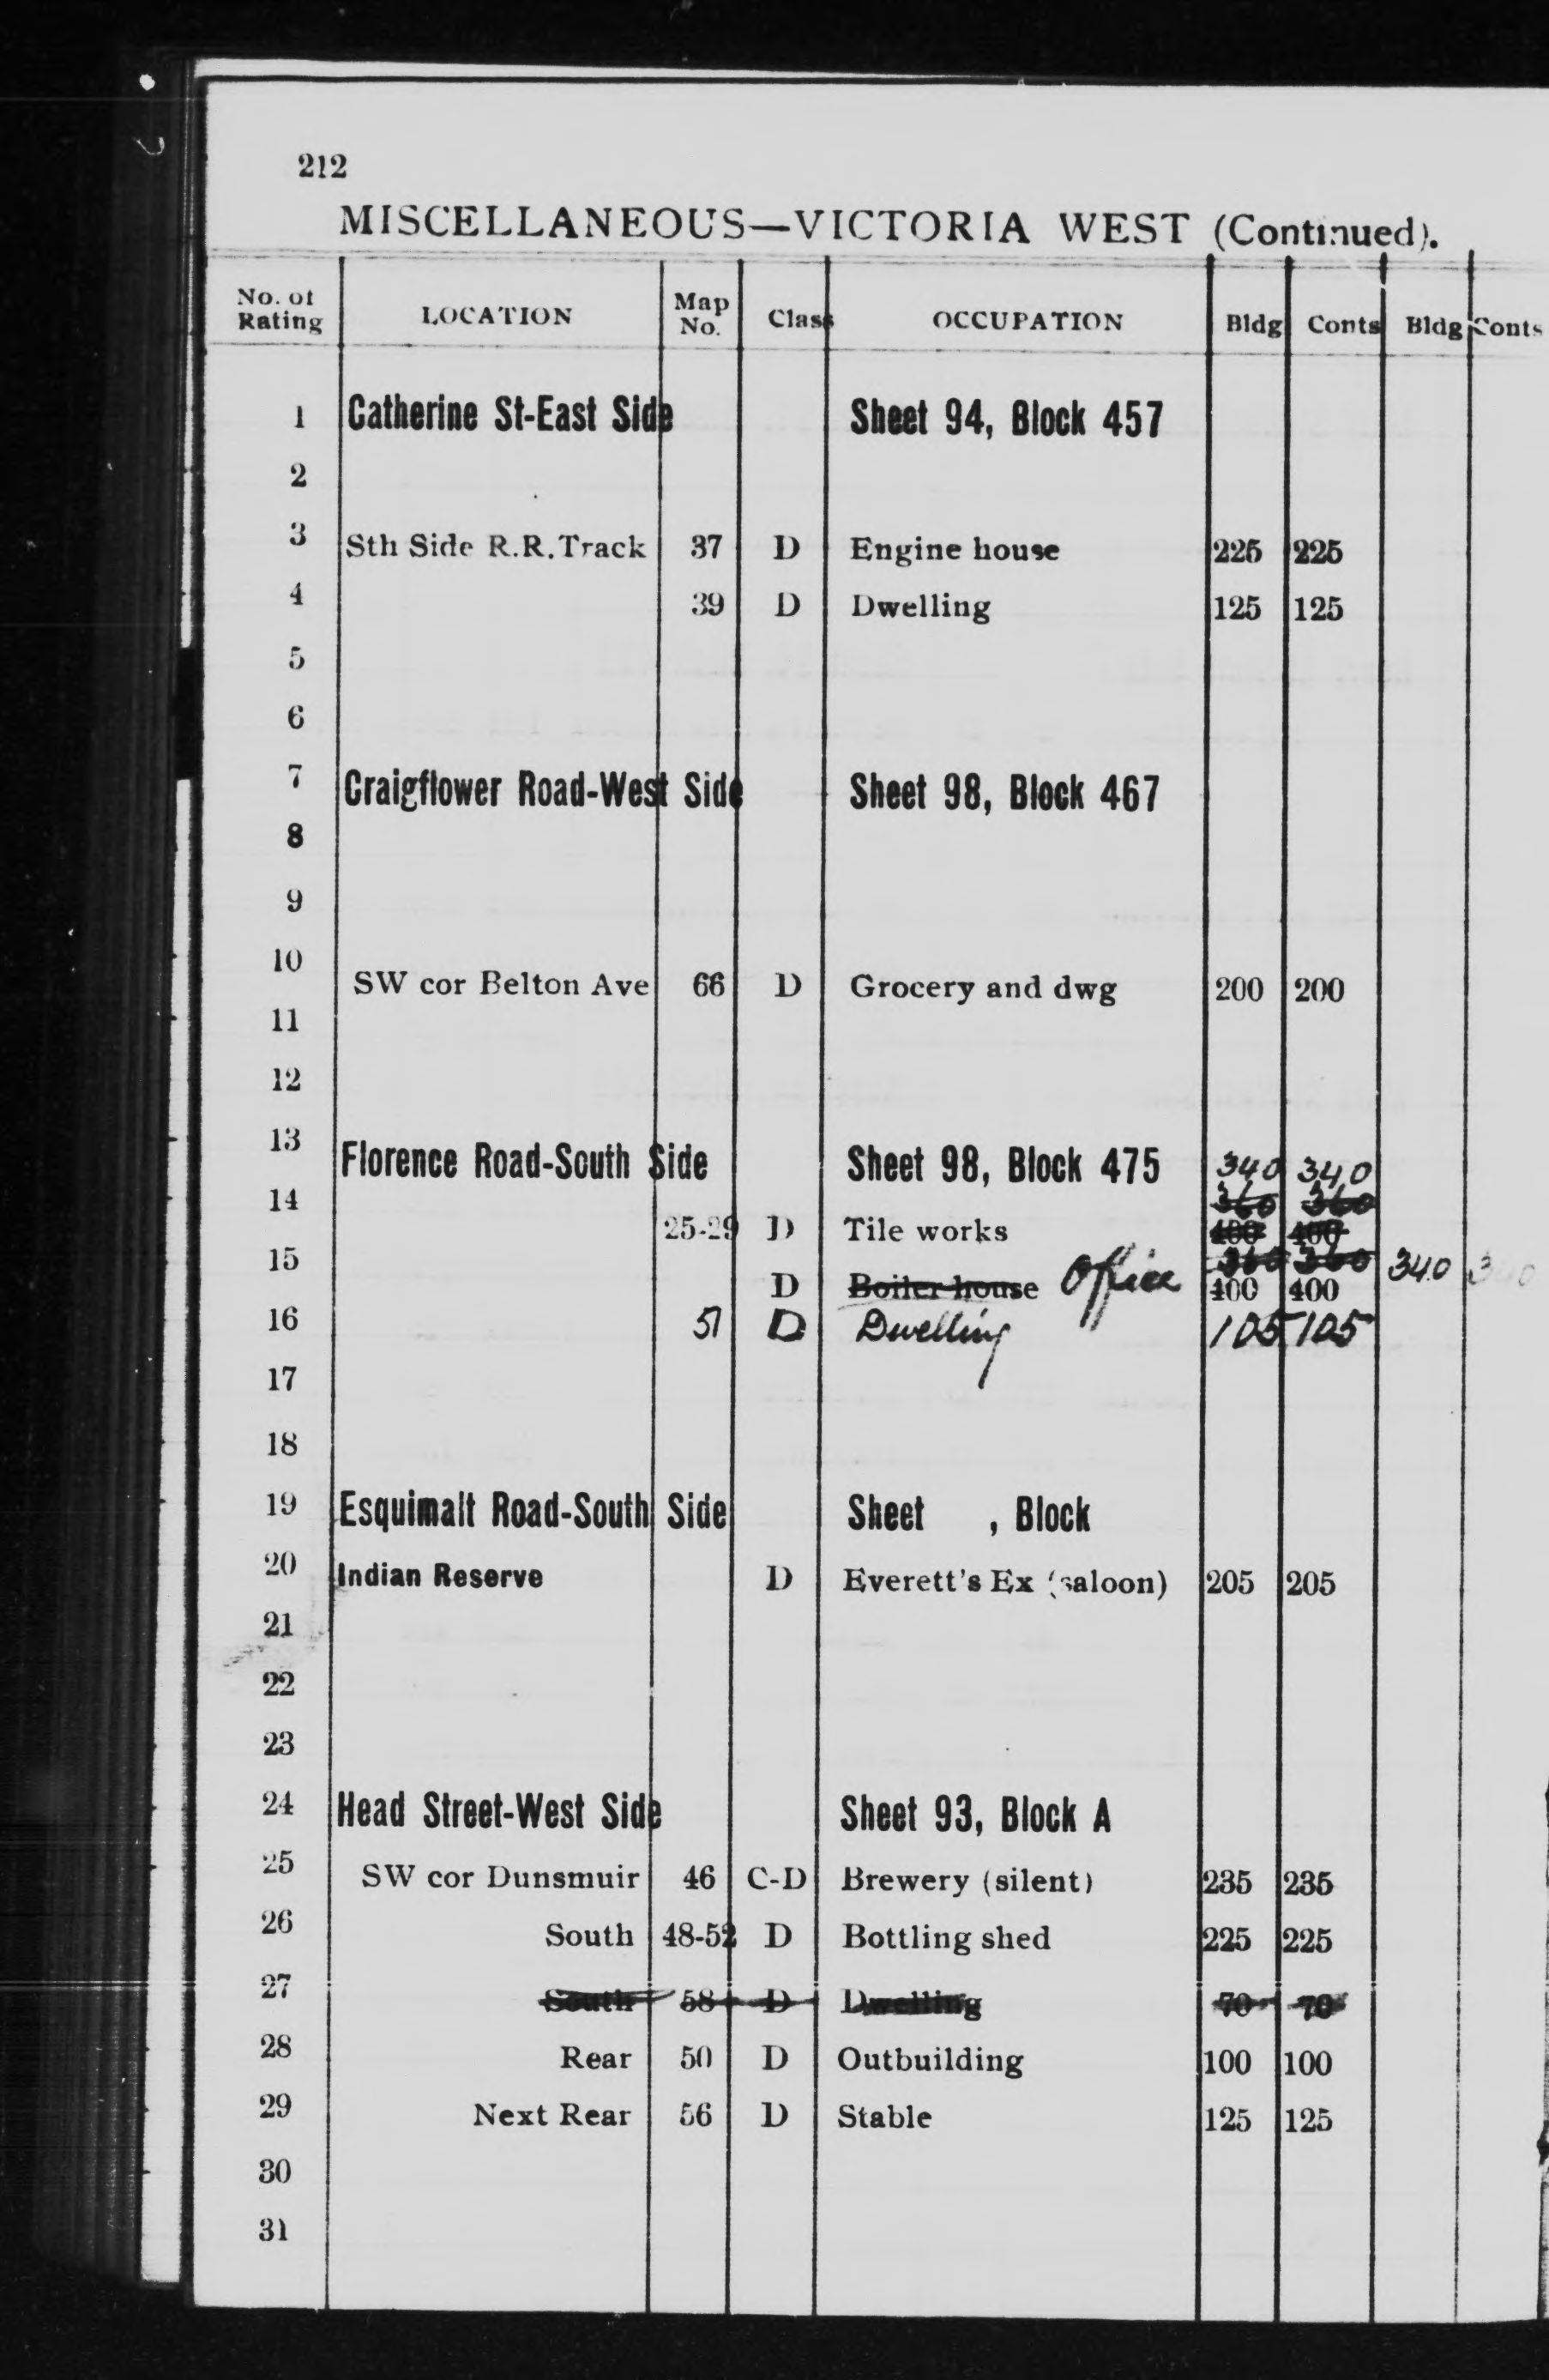 212
MISCELLANEOUS—VICTORIA WEST (Continued).
No. of Rating LOCATION Map No. Class OCCUPATION Bldg Conts Bldg Conts
1 Catherine St-East Side Sheet 94, Block 457
2
3 Sth Side R.R.Track 37 D Engine house 225 225
4 39 D Dwelling 125 125
5
6
7 Craigflower Road-West Side Sheet 98, Block 467
8
9
10 SW cor Belton Ave 66 D Grocery and dwg 200 200
11
12
13 Florence Road-South Side Sheet 98, Block 475 340 340
360 360
14 25-29 D Tile works 400 400
360 360 340 340
15 D Boiler house Office 400 400
16 51 D Dwelling 105 105
17
18
19 Esquimalt Road-South Side Sheet , Block
20 Indian Reserve D Everett's Ex (saloon) 205 205
21
22
23
24 Head Street-West Side Sheet 93, Block A
25 SW cor Dunsmuir 46 C-D Brewery (silent) 235 235
26 South 48-52 D Bottling shed 225 225
27 South 58 D Dwelling 70 70
28 Rear 50 D Outbuilding 100 100
29 Next Rear 56 D Stable 125 125
30
31